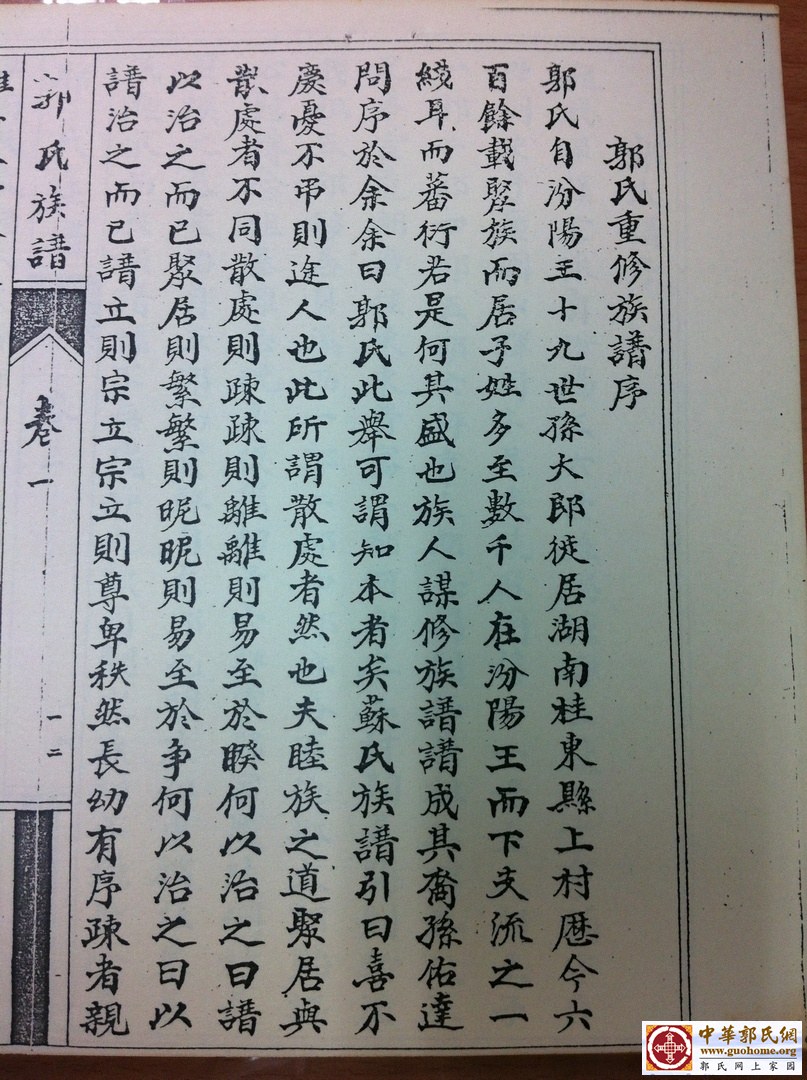 郭氏重修族譜序
郭氏自汾陽王十九世孫大郎徙居湖南桂東縣上村歷今六
百餘載聚族而居子姓多至數千人在汾陽王而下支流之一
綫耳而蕃衍若是何其盛也族人謀修族譜譜成其裔孫佑達
問序於余余曰郭氏此舉可謂知本者矣蘇氏族譜引曰喜不
慶憂不弔則途人也此所謂散處者然也夫睦族之道聚居與
散處者不同散處則疎疎則離離則易至於睽何以治之曰譜
以治之而已聚居則繁繁則昵昵則易至於爭何以治之曰以
譜治之而已譜立則宗立宗立則尊卑秩然長幼有序疎者親
郭氏族譜
卷一
一二
中華郭氏網
www.guohome.org
郭氏网上家园